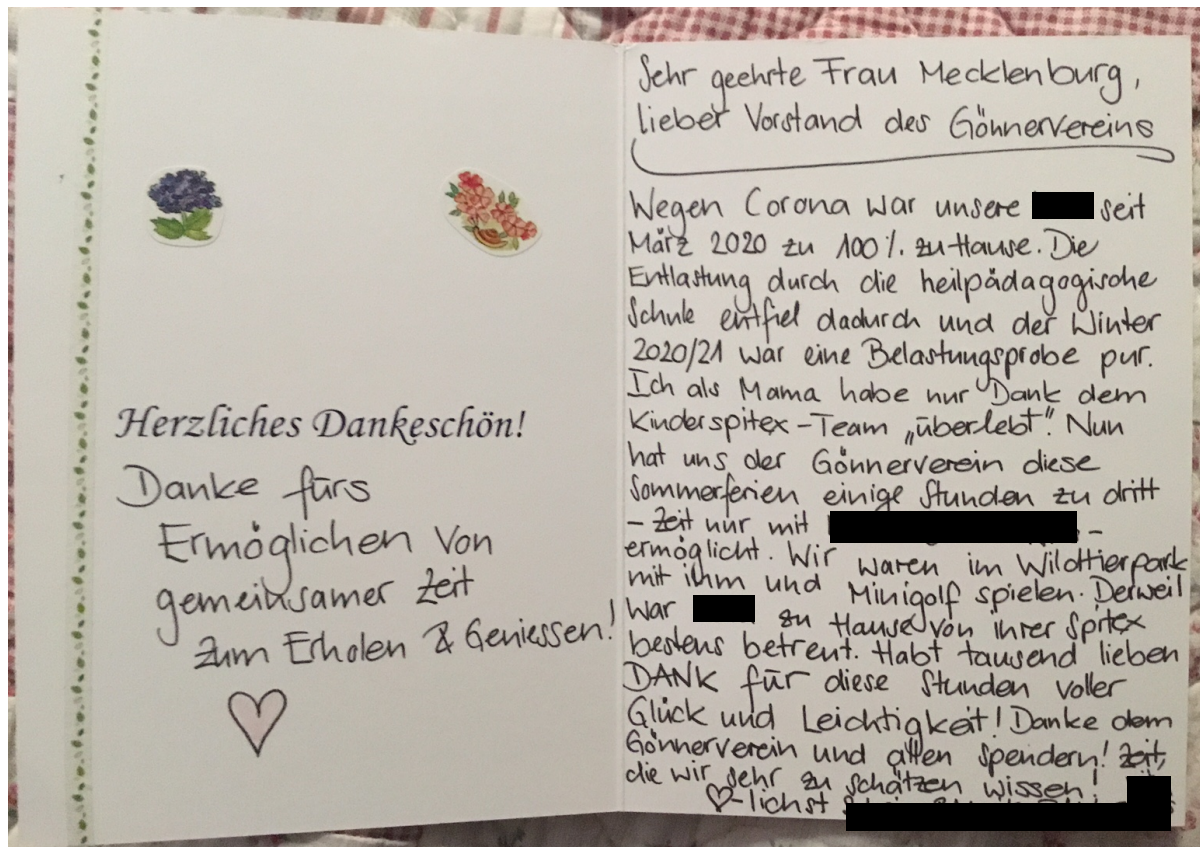 Herzliches Dankeschön!
Danke fürs
Ermöglichen von
gemeinsamer Zeit
zum Erholen & Geniessen!
Sehr geehrte Frau Mecklenburg,
lieber Vorstand des Gönnervereins
Wegen Corona war unsere seit
März 2020 zu 100% zu Hause. Die
Entlastung durch die heilpädagogische
Schule entfiel dadurch und der Winter
2020/21 war eine Belastungsprobe pur.
Ich als Mama habe nur Dank dem
Kinderspitex-Team „überlebt". Nun
hat uns der Gönnerverein diese
Sommerferien einige Stunden zu dritt
- Zeit nur mit -
ermöglicht. Wir waren im Wildtierpark
mit ihm und Minigolf spielen. Derweil
war zu Hause von ihrer Spitex
bestens betreut. Habt tausend lieben
DANK für diese Stunden voller
Glück und Leichtigkeit! Danke dem
Gönnerverein und allen Spendern! Zeit,
die wir sehr zu schätzen wissen!
♡-lichst